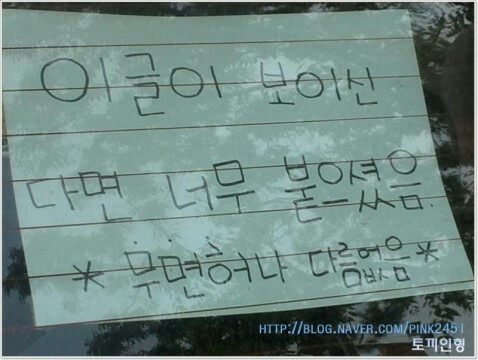 이글이 보이신
다면 너무 붙으셨음.
* 무면허나 다름없음 *
HTTP://BLOG.NAVER.COM/PINK2451
토끼인형